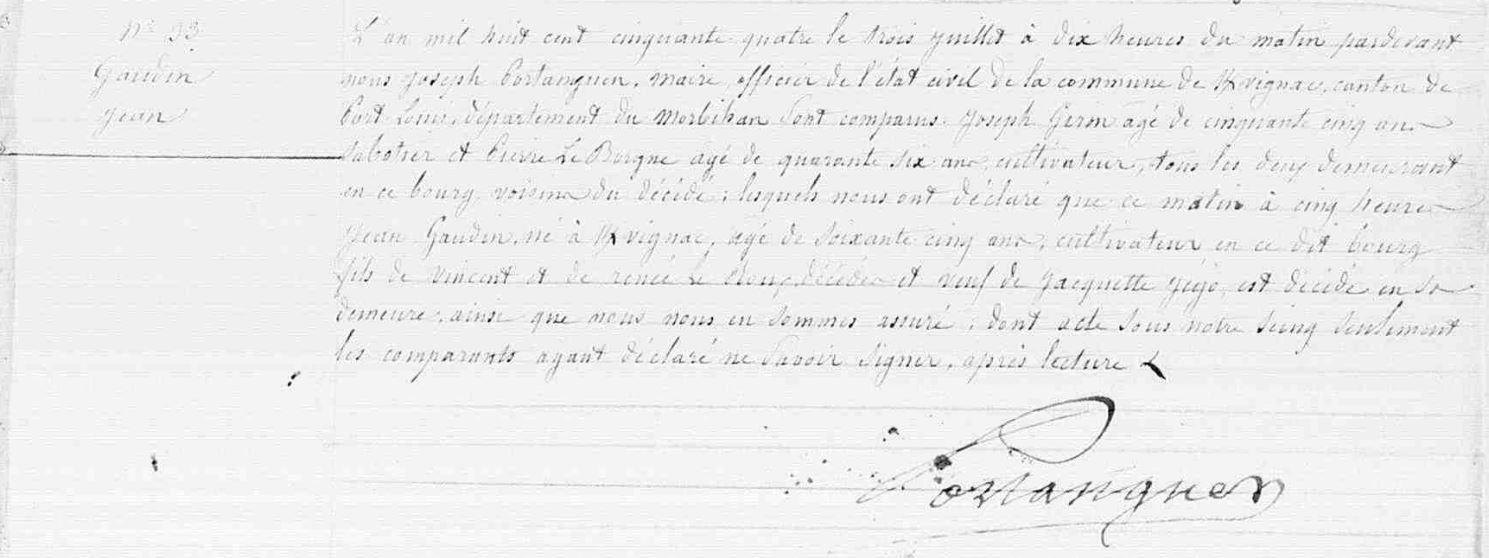 N° 33
Gaudin
Jean
L'an mil huit cent cinquante quatre le trois juillet à dix heures du matin pardevant
nous Joseph Portanguen, maire, officier de l'état civil de la commune de Kvignac, canton de
Port Louis, département du Morbihan sont comparus Joseph Guin agé de cinquante cinq ans
sabotier et Pierre Le Borgne agé de quarante six ans, cultivateur, tous les deux demeurant
en ce bourg voisins du décédé ; lesquels nous ont déclaré que ce matin à cinq heures
Jean Gaudin, né à Kvignac, agé de soixante cinq ans, cultivateur en ce dit bourg
fils de Vincent et de renée Le décédés et veuf de Jacquette est décédé en sa
demeure, ainsi que nous nous en sommes assuré ; dont acte sous notre seing seulement
les comparants ayant déclaré ne savoir signer, après lecture
Portanguen